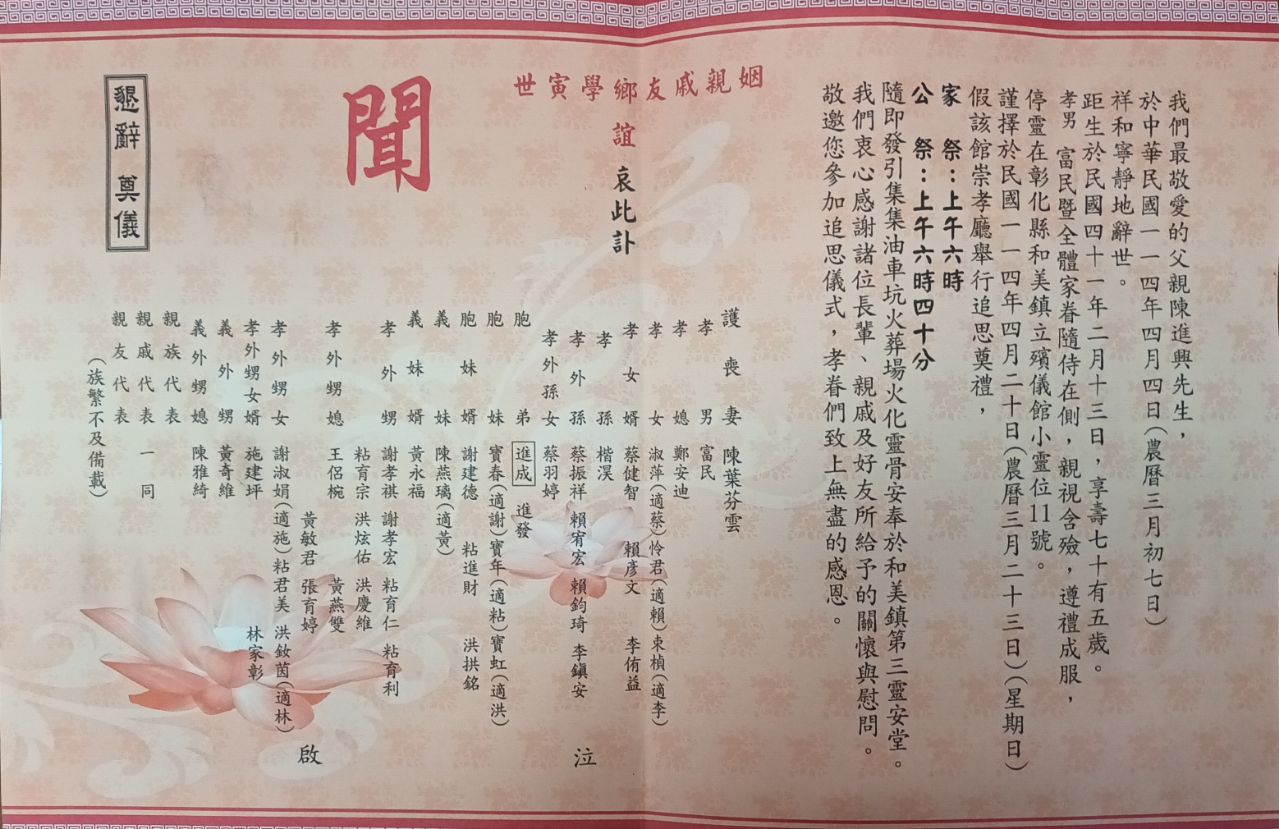 我們最敬愛的父親陳進興先生，
於中華民國一一四年四月四日(農曆三月初七日)
祥和寧靜地辭世。
距生於民國四十一年二月十三日，享壽七十有五歲。
孝男 富民暨全體家眷隨侍在側，親視含殮，遵禮成服，
停靈在彰化縣和美鎮立殯儀館小靈位11號。
謹擇於民國一一四年四月二十日(農曆三月二十三日)(星期日)
假該館崇孝廳舉行追思奠禮，
家 祭：上午六時
公 祭：上午六時四十分
隨即發引集集油車坑火葬場火化靈骨安奉於和美鎮第三靈安堂。
我們衷心感謝諸位長輩、親戚及好友所給予的關懷與慰問。
敬邀您參加追思儀式，孝眷們致上無盡的感恩。
姻親戚友鄉學寅世
誼 哀此訃
聞
護喪妻 陳葉芬雲
孝男 富民
孝媳 鄭安迪
孝女 淑萍(適蔡) 怜君(適賴) 束楨(適李)
孝女婿 蔡健智 賴彥文 李侑益
孝孫 楷淏
孝外孫 蔡振祥 賴宥宏 賴鈞琦 李鎮安
孝外孫女 蔡羽婷
泣
胞弟 進成 進發
胞妹 寶春(適謝) 寶年(適粘) 寶虹(適洪)
胞妹婿 謝建德 粘進財 洪拱銘
義妹 陳燕璃(適黃)
義妹婿 黃永福
孝外甥 謝孝祺 謝孝宏 粘育仁 粘育利
粘育宗 洪炫佑 洪慶維
孝外甥媳 王侶椀 黃燕雙
黃敏君 張育婷
孝外甥女 謝淑娟(適施) 粘君美 洪敘茵(適林)
孝外甥女婿 施建坪 林家彰
義外甥 黃奇維
義外甥媳 陳雅綺
親族代表
親戚代表 一同
親友代表
(族繁不及備載)
啟
懇辭 奠儀